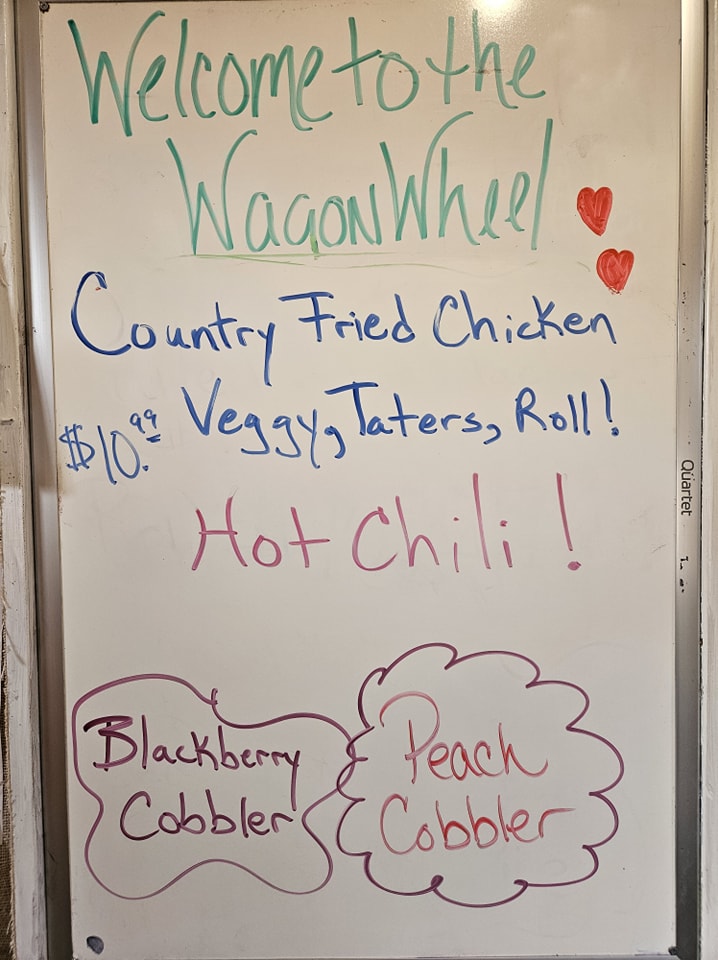 Welcome to the
Wagon Wheel
Country Fried Chicken
$10.99 Veggy, Taters, Roll!
Hot Chili!
Blackberry
Cobbler
Peach
Cobbler
Quartet